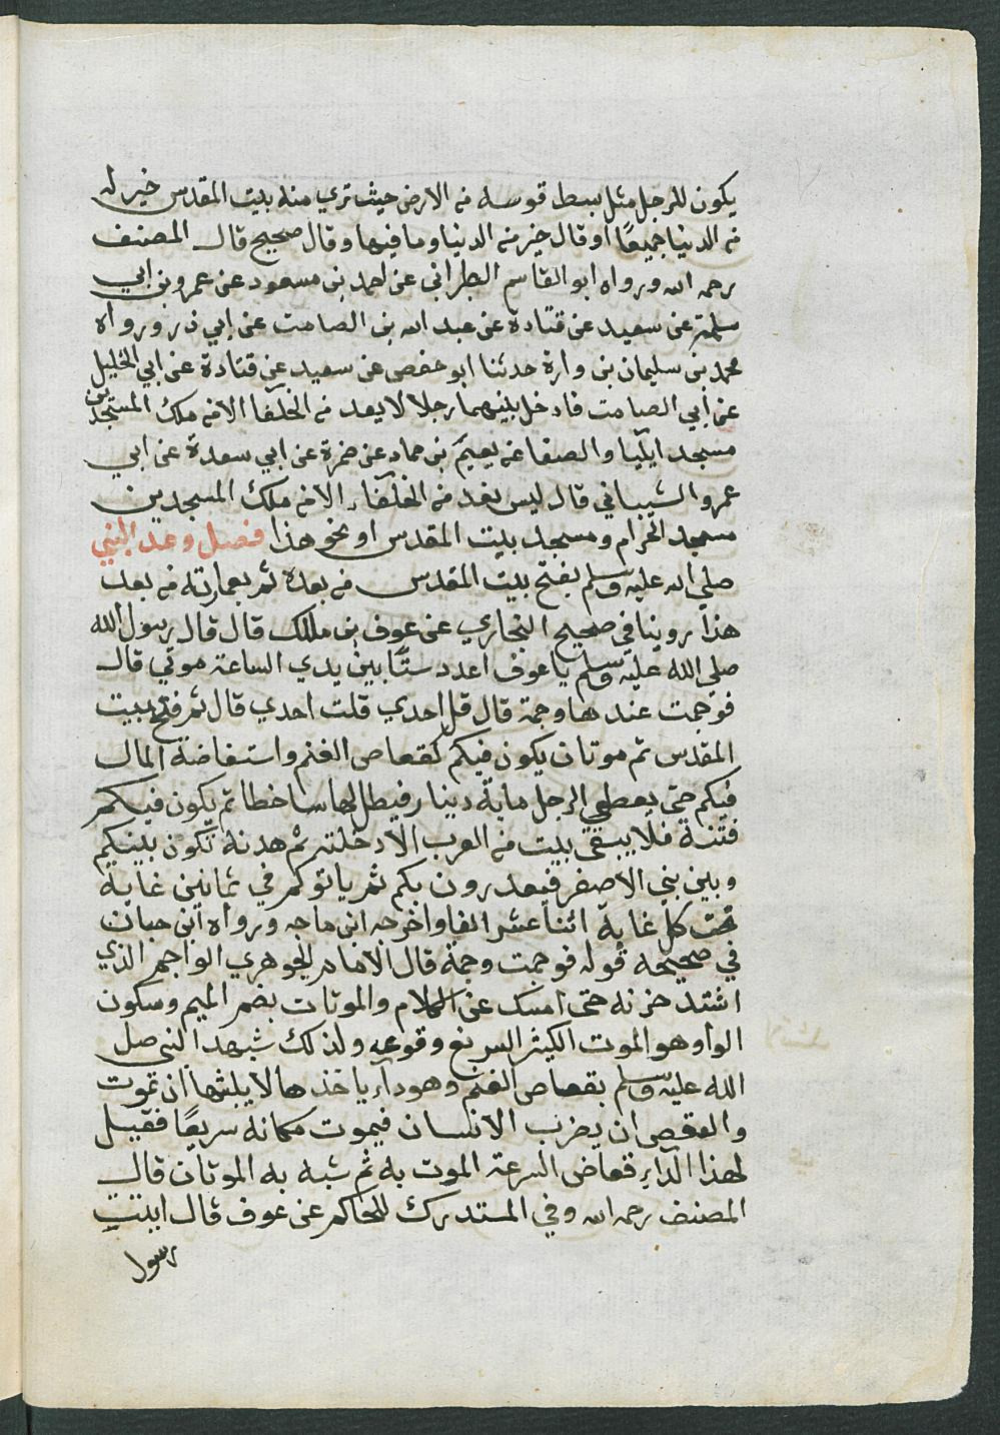 يكون للرجل مثل بسط قوسه من الارض حيث تري منه بيت المقدس خير له
من الدنيا جميعًا او قال خير من الدنيا وما فيها وقال صحيح قال المصنف
رحمه الله ورواه ابو القاسم الطبراني عن احمد بن مسعود عن عمرو بن ابي
سلمة عن سعيد عن قتادة عن عبد الله بن الصامت عن ابي ذر ورواه
محمد بن سليمان بن وارة حدثنا ابو حفص عن سعيد عن قتادة عن ابي الخليل
عن ابي الصامت فادخل بينهما رجلا لا يعد من الخلفا الا من ملك المسجدين
مسجد ايليا والصفا عن نعيم بن حماد عن ضمرة عن ابي سعدة عن ابي
عمرو الشيباني قال ليس نعد من الخلفاء الا من ملك المسجدين
مسجد الحرام ومسجد بيت المقدس او نحو هذا فصل وعد النبي
صلي الله عليه وسلم بفتح بيت المقدس من بعده ثم بعمارته من بعد
هذا روينا في صحيح البخاري عن عوف بن مالك قال قال رسول الله
صلي الله عليه وسلم يا عوف اعدد ستًا بين يدي الساعة موتي قال
فوجمت عندها وجمة قال قل احدي قلت احدي قال ثم فتح بيت
المقدس ثم موتان يكون فيكم كقعاص الغنم واستفاضة المال
فيكم حتي يعطي الرجل ماية دينار فيظل لها ساخطا ثم يكون فيكم
فتنة فلا يبقي بيت من العرب الا دخلته ثم هدنة تكون بينكم
وبين بني الاصفر فيعدرون بكم ثم ياتوكم في ثمانين غاية
تحت كل غاية اثنا عشر الفا واخرجه ابن ماجه ورواه ابن حبان
في صحيحه قوله فوجمت وجمة قال الامام الجوهري الواجم الذي
اشتد حزنه حتي امسك عن الكلام والموتان بضم الميم وسكون
الواو هو الموت الكثير السريع وقوعه ولذلك شبهه النبي صلي
الله عليه وسلم بقعاص الغنم وهو داء ياخذها لا يلبثها ان تموت
والقعص ان يضرب الانسان فيموت مكانه سريعًا فقيل
لهذا الداء قعاص السرعة الموت به ثم شبه به الموتان قال
المصنف رحمه الله وفي المستدرك للحاكم عن عوف قال اتيت
رسول